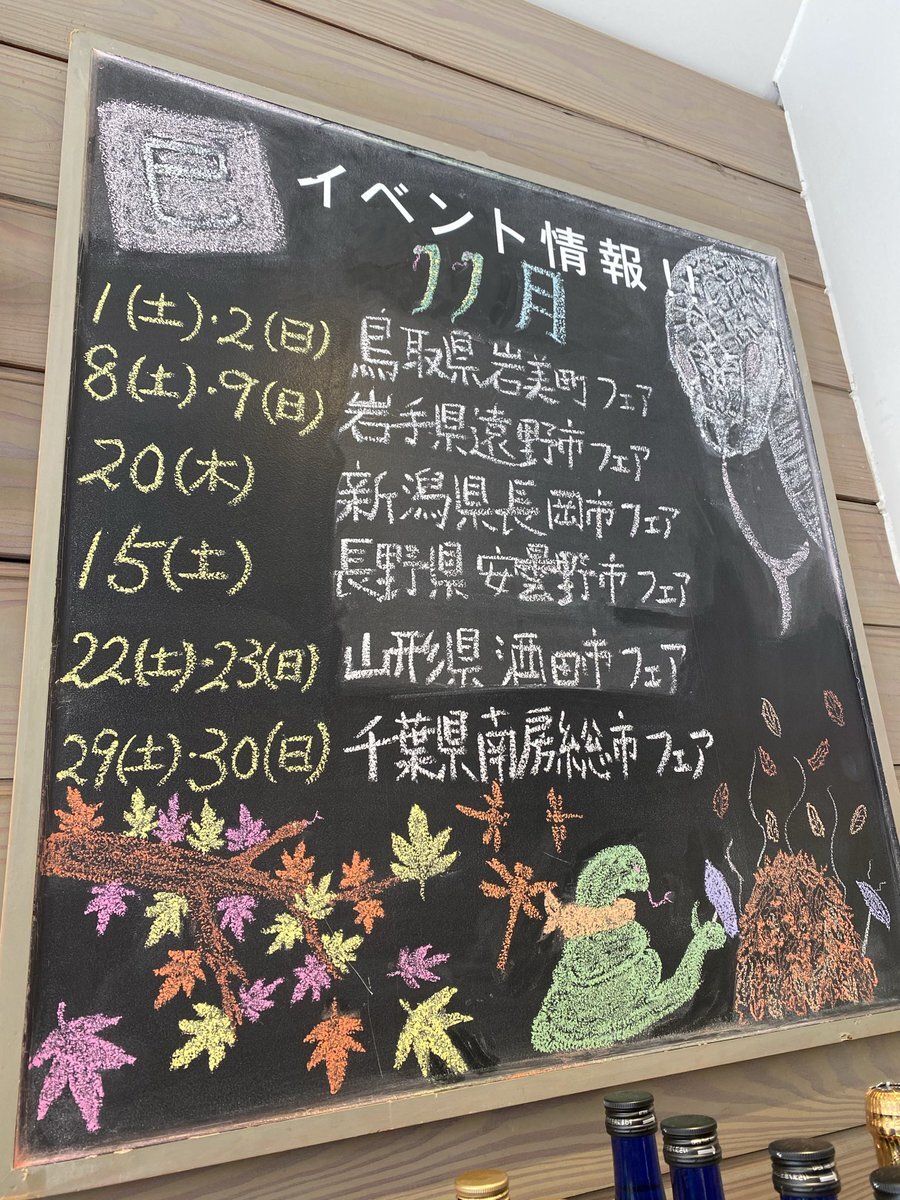 巳
イベント情報!!
11月
1(土)・2(日) 鳥取県岩美町フェア
8(土)・9(日) 岩手県遠野市フェア
20(木) 新潟県長岡市フェア
15(土) 長野県安曇野市フェア
22(土)・23(日) 山形県酒田市フェア
29(土)・30(日) 千葉県南房総市フェア